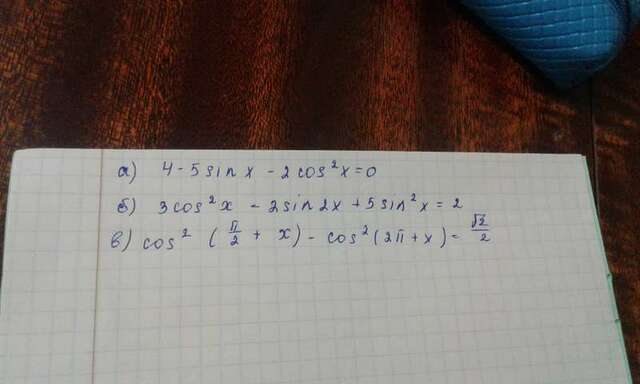 а) 4 - 5 sin x - 2 cos² x = 0
б) 3 cos² x - 2 sin 2x + 5 sin² x = 2
в) cos² (π/2 + x) - cos² (2π + x) = √2/2